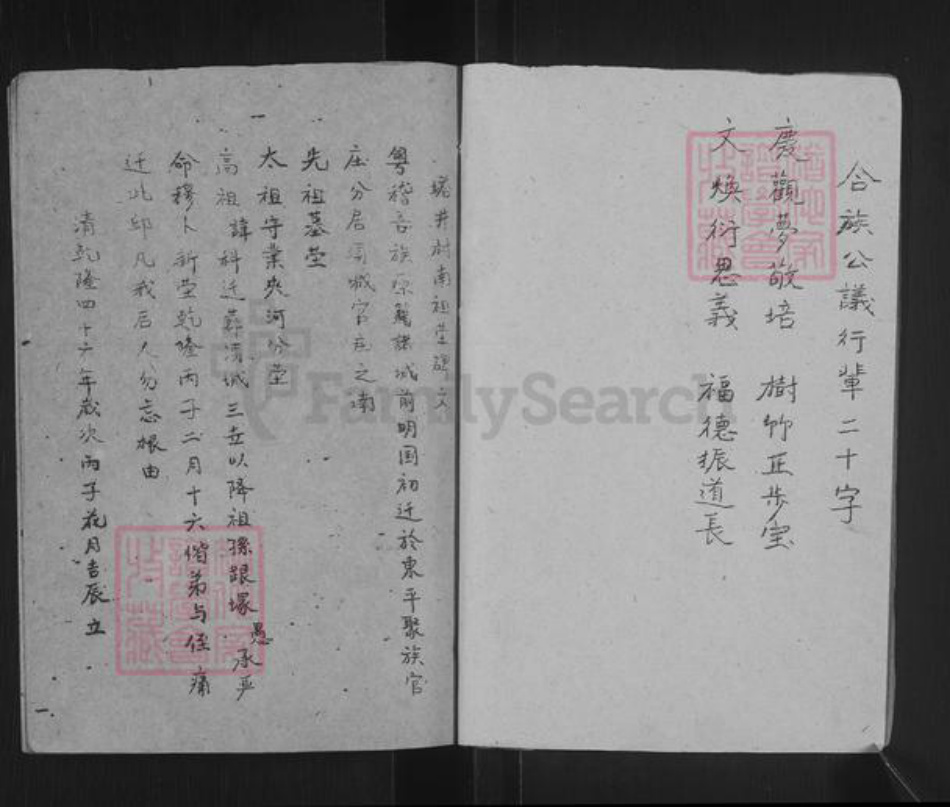 合族公議行輩二十字
慶觀夢敬培 樹竹正步宝
文煥衍思義 福德振道長
井村南祖塋碑文
粤稽吾族原籍諸城前明国初迁於東平聚族官
庄分居須城官庄之南
先祖墓塋
太祖守業夾河分塋
高祖諱科迁葬須城三世以降祖孫跟塚愚承严
命穆卜新塋乾隆丙子二月十六偕弟与侄痛
迁此邱凡我后人勿忘根由
清乾隆四十六年歲次丙子花月吉辰立
FamilySearch